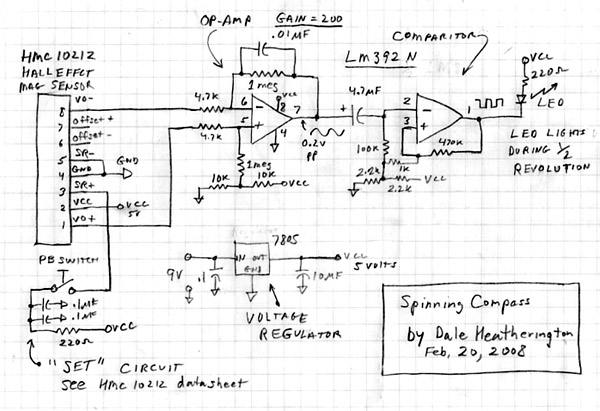 OP-AMP
GAIN = 200
.01MF
COMPARITOR
HMC 10212
HALL EFFECT
MAG SENSOR
1 meg
LM392N
VCC
220Ω
LED
VO-
8
4.7K
6
VCC
8
7
4.7MF
2
1
OFFSET+
7
4.7K
5
4
3
OFFSET-
6
0.2V
PP
100K
470K
LED LIGHTS
DURING 1/2
REVOLUTION
SR-
5
GND
1meg
1K
GND
4
SR+
3
10K
10K
VCC
2.2K
2.2K
VCC
VCC
2
VCC
5V
VO+
1
PB SWITCH
7805
9V
.1
IN
OUT
GND
VCC
5 VOLTS
10MF
.1MF
.1MF
VCC
220Ω
VOLTAGE
REGULATOR
"SET" CIRCUIT
See HMC 10212 datasheet
Spinning Compass
by Dale Heatherington
Feb, 20, 2008